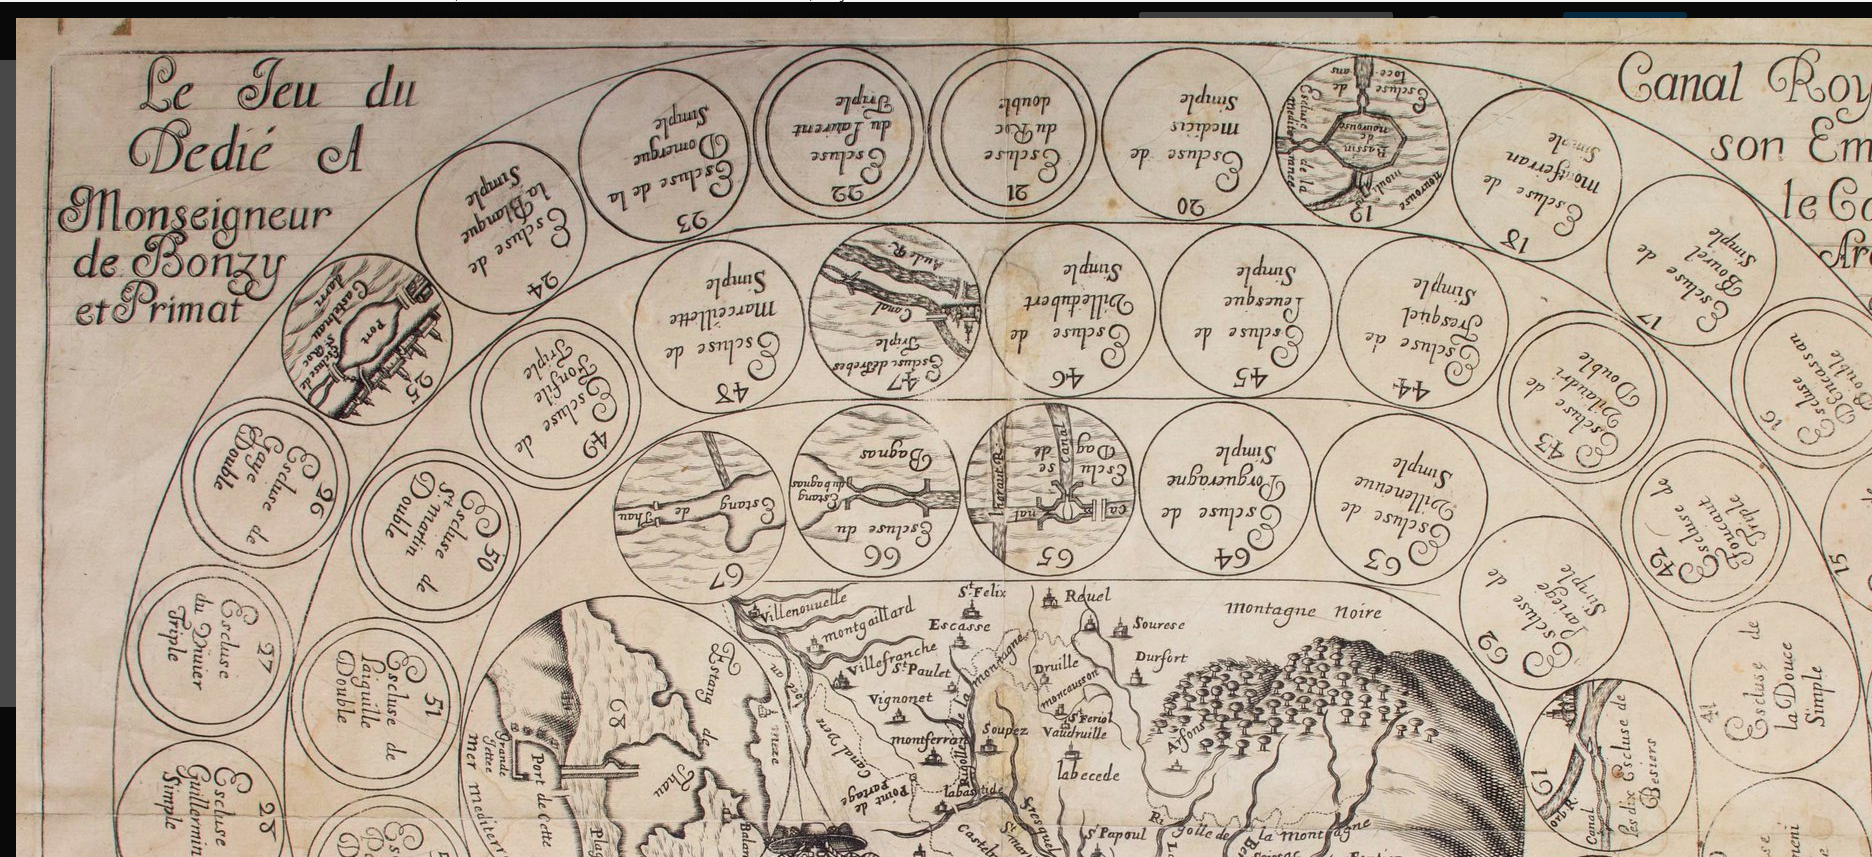 Le Jeu du
Dedié A
Monseigneur
de Bonzy
et Primat
Canal Roy
son Em
le Ca
Ar
15
16
Escluse
D'Encassan
Double
17
Escluse de
Bourel
Simple
18
Escluse de
montferran
Simple
19
Bassin
de
nourouse
20
Escluse de
medicis
Simple
21
Escluse
du Roc
double
22
Escluse
du Laurent
Triple
23
Escluse de la
Domergue
Simple
24
Escluse de
la Planque
Simple
25
Port
Castelnau
darri
Escluse de
St Roc
26
Escluse de
Gaye
Double
27
Escluse
du Viuier
Triple
28
Escluse
Guillermin
Simple
41
Escluse de
la Douce
Simple
42
Escluse de
Foucaut
Triple
43
Escluse de
Vilaudri
Double
44
Escluse de
Fresquel
Simple
45
Escluse de
Leuesque
Simple
46
Escluse de
Villedubert
Simple
47
Escluse de Trebes
Triple
Canal
Aude R.
48
Escluse de
Marceillette
Simple
49
Escluse de
Fonfile
Triple
50
Escluse de
St martin
Double
51
Escluse de
laiguille
Double
61
Les dix Escluse de
Besiers
Canal
62
Escluse de
Simple
63
Escluse de
Villeneuue
Simple
64
Escluse de
Porgueragne
Simple
65
Esclu
se
de
Dag
Canal
Ca
nal
Heraut R.
66
Escluse du
Bagnas
Estang
du bagnas
67
Estang de Thau
68
Estang de
Thau
meze
Balaru
Grande
Jettée
Port de Cette
Plag
Mer Mediterr
Villenouuelle
montgaillard
Villefranche
St Paulet
Vignonet
montferran
St Felix
Escasse
Reuel
Sourese
Durfort
Montagne Noire
Druille
moncausson
St Feriol
Vaudruille
Soupez
labecede
labastide
Arfons
Rigolle de la montagne
Point de
Partage
Castel
Fresquel
St Papoul
Rigolle de la Montagne